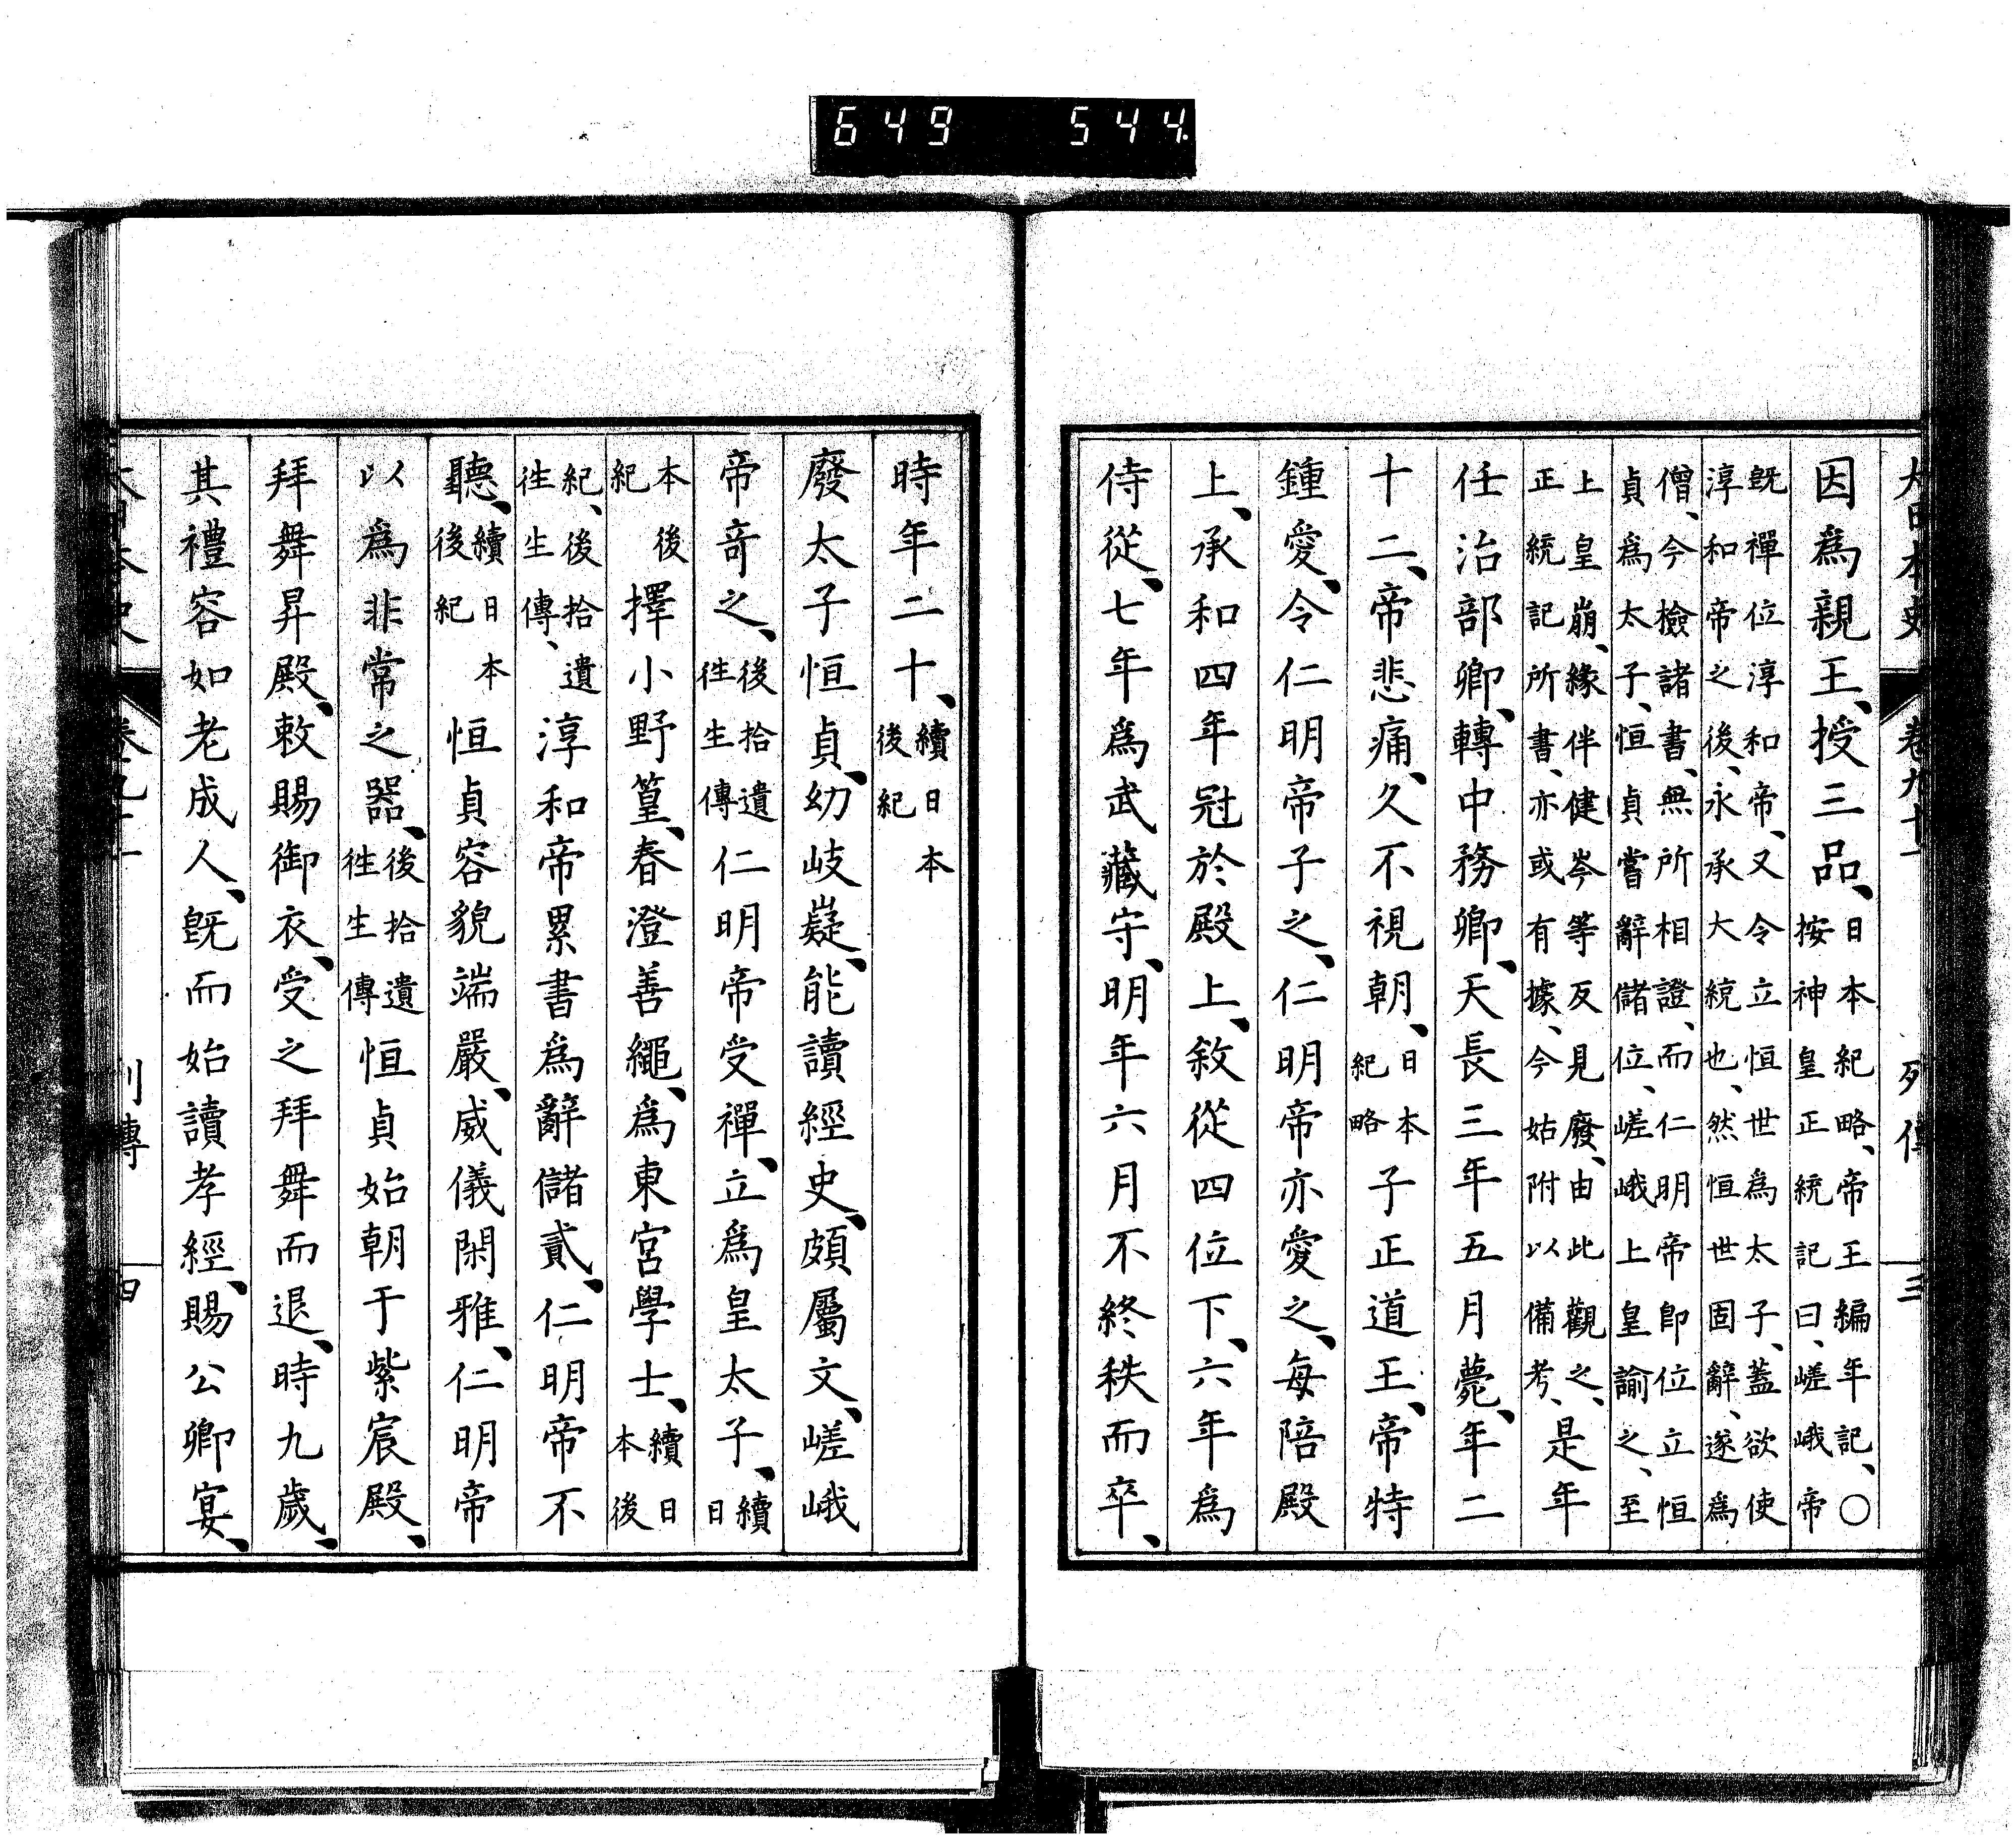 大日本史 卷九十一 列傳 三
因爲親王、授三品、日本紀略、帝王編年記、〇按神皇正統記曰、嵯峨帝
既禪位淳和帝、又令立恒世爲太子、蓋欲使
淳和帝之後、永承大統也、然恒世固辭、遂爲
僧、今檢諸書、無所相證、而仁明帝卽位立恒
貞爲太子、恒貞嘗辭儲位、嵯峨上皇諭之、至
上皇崩、緣伴健岑等反見廢、由此觀之、
正統記所書、亦或有據、今姑附以備考、是年
任治部卿、轉中務卿、天長三年五月薨、年二
十二、帝悲痛、久不視朝、日本紀略子正道王、帝特
鍾愛、令仁明帝子之、仁明帝亦愛之、每陪殿
上、承和四年冠於殿上、敘從四位下、六年爲
侍從、七年爲武藏守、明年六月不終秩而卒、
時年二十、續日本後紀
廢太子恒貞、幼岐嶷、能讀經史、頗屬文、嵯峨
帝奇之、後拾遺往生傳仁明帝受禪、立爲皇太子、續日
本後紀擇小野篁、春澄善繩、爲東宮學士、續日本後
紀、後拾遺往生傳、淳和帝累書爲辭儲貳、仁明帝不
聽、續日本後紀恒貞容貌端嚴、威儀閑雅、仁明帝
以爲非常之器、後拾遺往生傳恒貞始朝于紫宸殿、
拜舞昇殿、敕賜御衣、受之拜舞而退、時九歲、
其禮容如老成人、既而始讀孝經、賜公卿宴、
大日本史 卷九十一 列傳 四
649 544